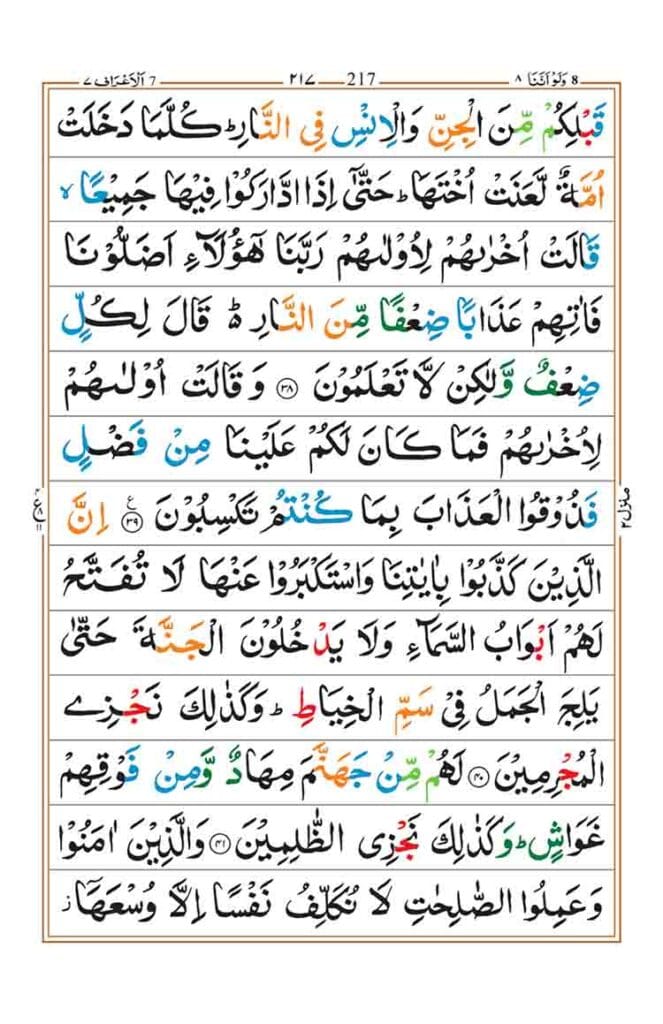 8 وَلَوْ اَنَّنَا ٨ 217 ٢١٧ 7 اَلْاَعْرَاف ٧
قَبْلِكُمْ مِّنَ الْجِنِّ وَالْاِنْسِ فِى النَّارِ ؕ كُلَّمَا دَخَلَتْ
اُمَّةٌ لَّعَنَتْ اُخْتَهَا ؕ حَتّٰٓى اِذَا ادَّارَكُوْا فِيْهَا جَمِيْعًا ۙ
قَالَتْ اُخْرٰىهُمْ لِاُوْلٰىهُمْ رَبَّنَا هٰٓؤُلَآءِ اَضَلُّوْنَا
فَاٰتِهِمْ عَذَابًا ضِعْفًا مِّنَ النَّارِ ؕ۬ قَالَ لِكُلٍّ
ضِعْفٌ وَّلٰكِنْ لَّا تَعْلَمُوْنَ ﴿۳۸﴾ وَ قَالَتْ اُوْلٰىهُمْ
لِاُخْرٰىهُمْ فَمَا كَانَ لَكُمْ عَلَيْنَا مِنْ فَضْلٍ
فَذُوْقُوا الْعَذَابَ بِمَا كُنْتُمْ تَكْسِبُوْنَ ﴿۳۹﴾ ع اِنَّ
الَّذِيْنَ كَذَّبُوْا بِاٰيٰتِنَا وَاسْتَكْبَرُوْا عَنْهَا لَا تُفَتَّحُ
لَهُمْ اَبْوَابُ السَّمَآءِ وَلَا يَدْخُلُوْنَ الْجَنَّةَ حَتّٰى
يَلِجَ الْجَمَلُ فِىْ سَمِّ الْخِيَاطِ ؕ وَكَذٰلِكَ نَجْزِے
الْمُجْرِمِيْنَ ﴿۴۰﴾ لَهُمْ مِّنْ جَهَنَّمَ مِهَادٌ وَّمِنْ فَوْقِهِمْ
غَوَاشٍ ؕ وَكَذٰلِكَ نَجْزِى الظّٰلِمِيْنَ ﴿۴۱﴾ وَالَّذِيْنَ اٰمَنُوْا
وَعَمِلُوا الصّٰلِحٰتِ لَا نُكَلِّفُ نَفْسًا اِلَّا وُسْعَهَاۤ ز
منزل ٢